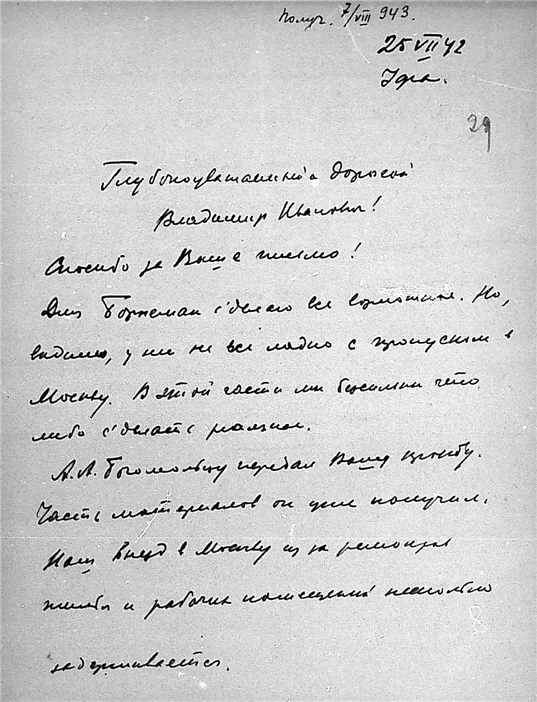 Получ. 7/VIII 943.
25 VII 42
Уфа.
29
Глубокоуважаемый и дорогой
Владимир Иванович!
Спасибо за Ваше письмо!
Для сделаю все возможное. Но,
видимо, у них не все ладно с пропуском в
Москву. В этой части мы бессильны что
либо сделать реальное.
А.А. Богомольцу передал Вашу просьбу.
Часть материалов он уже получил.
Наш в Москву из за ремонта
жилья и рабочих помещений несколько
задерживается.
8